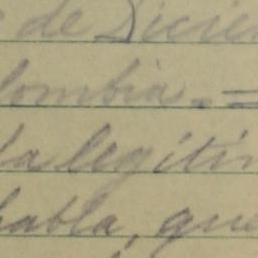 de Diciem
lombia. =
la legitim
habla, que